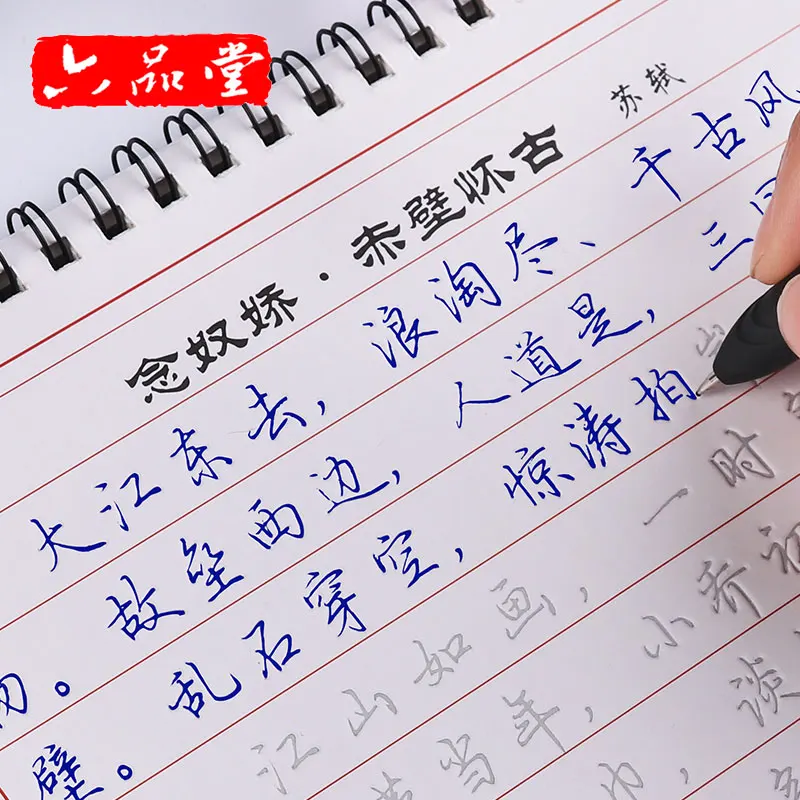 六品堂
念奴娇·赤壁怀古 苏轼
大江东去，浪淘尽、千古风
。故垒西边，人道是，三
壁。乱石穿空，惊涛拍
江山如画，一时
当年，小乔初
巾，谈